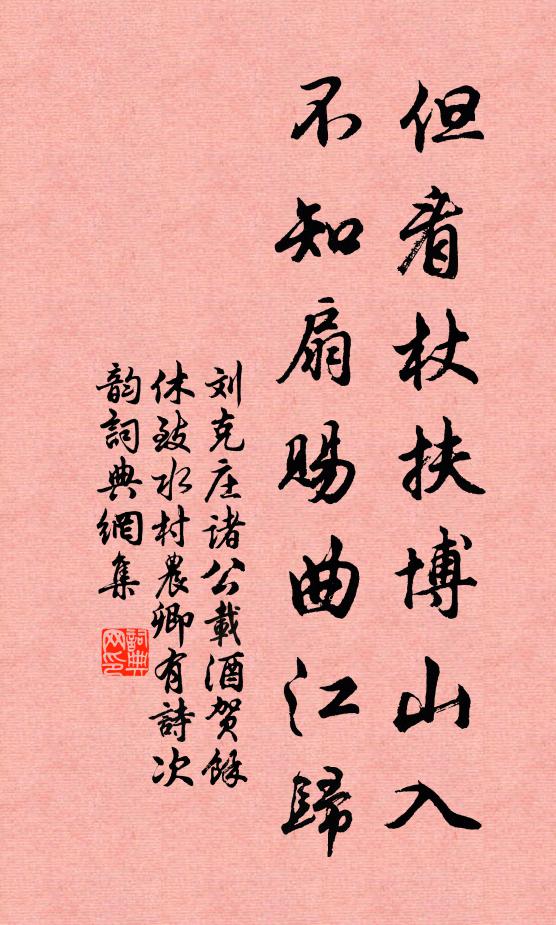 但看杖扶博山入
不知扇賜曲江歸
刘克庄诸公載酒贺餘
休致水村農卿有詩次
韵詞典網集
詞典
网印